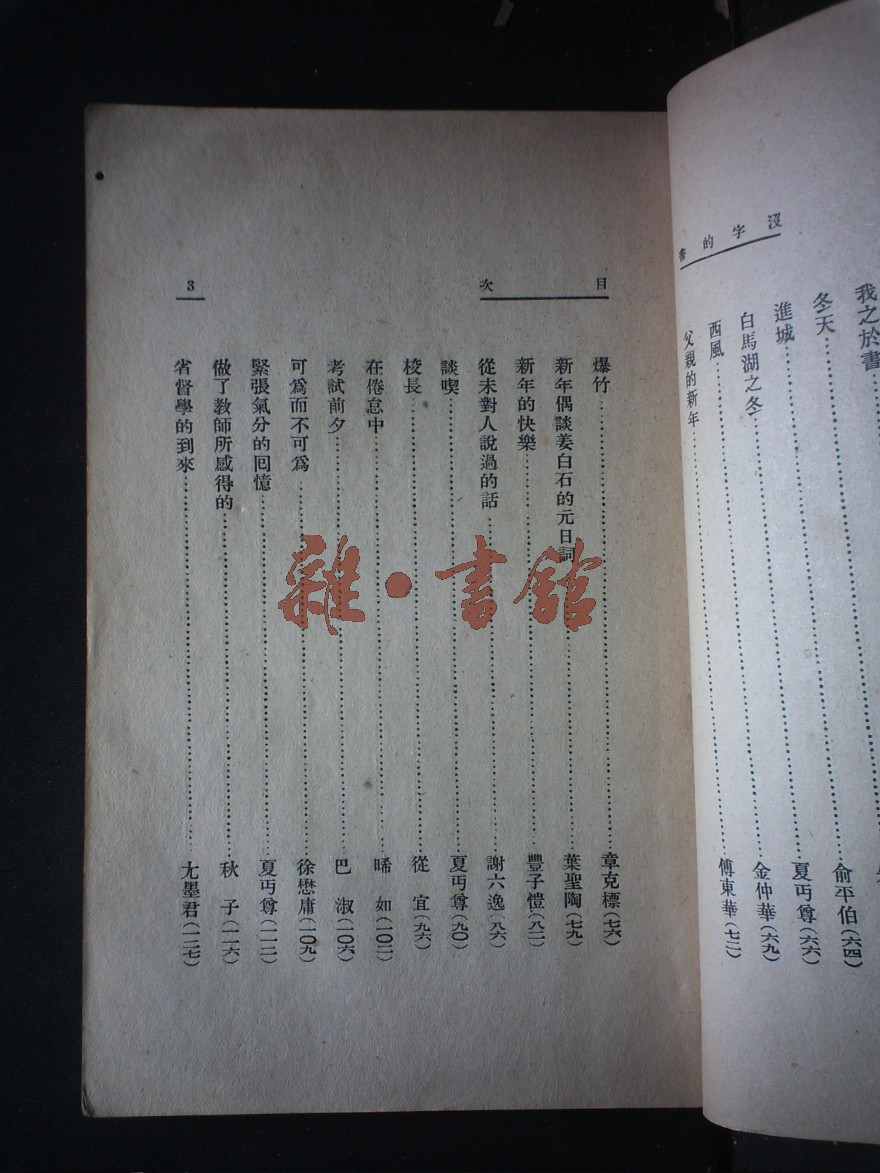 沒字的書
我之於書
冬天
進城………俞平伯(六四)
白馬湖之冬………夏丏尊(六六)
西風………金仲華(六九)
父親的新年………傅東華(七二)
目次
3
爆竹………章克標(七六)
新年偶談姜白石的元日詞………葉聖陶(七九)
新年的快樂………豐子愷(八二)
從未對人說過的話………謝六逸(八六)
談喫………夏丏尊(九〇)
校長………從宜(九六)
在倦怠中………晞如(一〇二)
考試前夕………巴淑(一〇六)
可爲而不可爲………徐懋庸(一〇九)
緊張氣分的囘憶………夏丏尊(一一二)
做了教師所感得的………秋子(一一六)
省督學的到來………尢墨君(一二七)
雜·書館